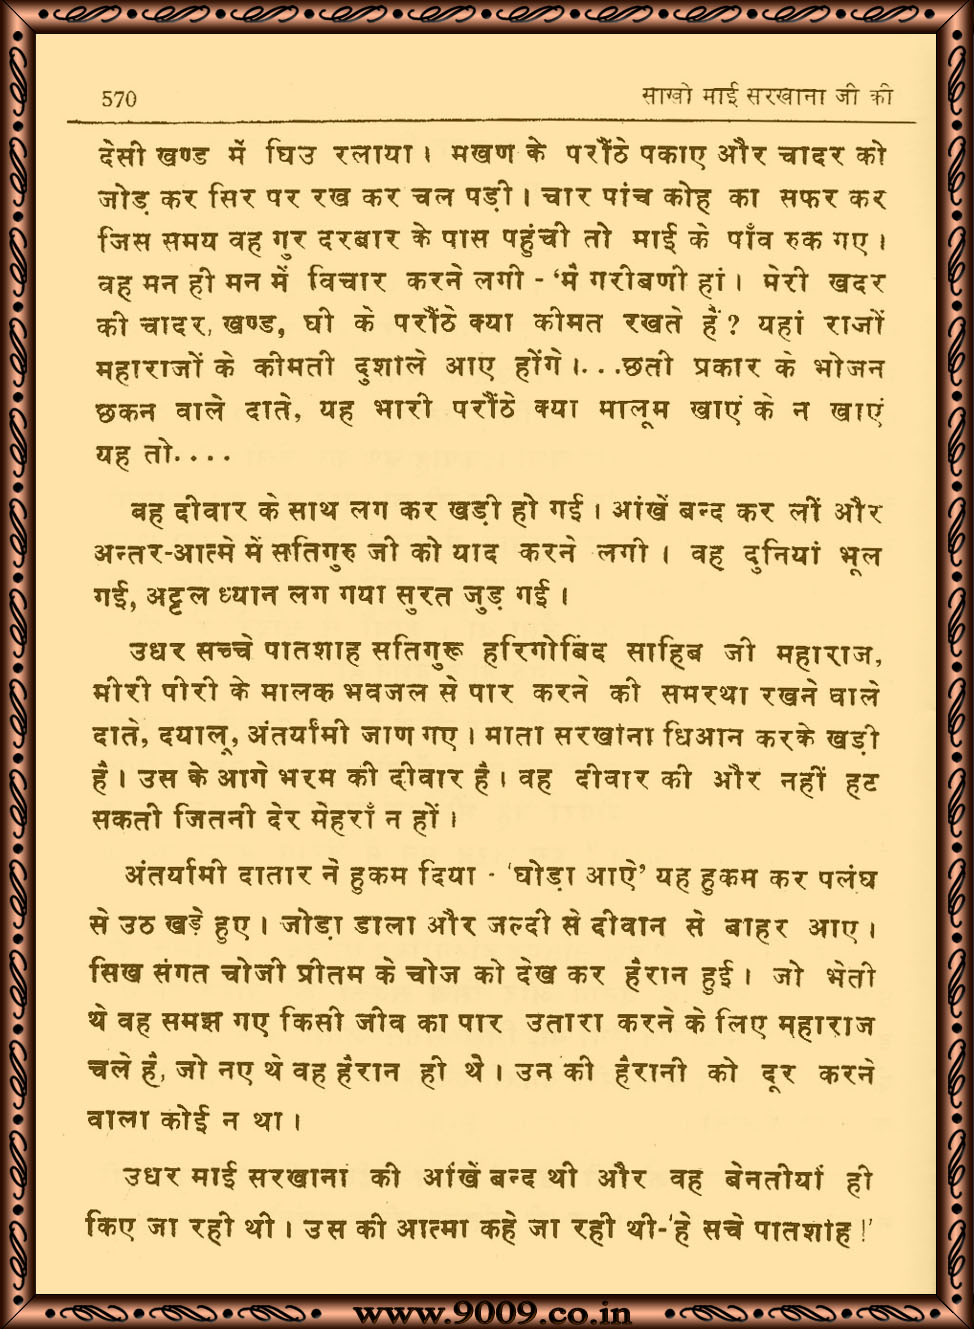 570 साखी माई सरखाना जी की
देसी खण्ड में घिउ रलाया। मखण के परौंठे पकाए और चादर को
जोड़ कर सिर पर रख कर चल पड़ी। चार पांच कोह का सफर कर
जिस समय वह गुर दरबार के पास पहुंची तो माई के पाँव रुक गए।
वह मन ही मन में विचार करने लगी - ‘मैं गरीबणी हां। मेरी खदर
की चादर, खण्ड, घी के परौंठे क्या कीमत रखते हैं? यहां राजों
महाराजों के कीमती दुशाले आए होंगे।...छती प्रकार के भोजन
छकन वाले दाते, यह भारी परौंठे क्या मालूम खाएं के न खाएं
यह तो....
वह दीवार के साथ लग कर खड़ी हो गई। आंखें बन्द कर लीं और
अन्तर-आत्मे में सतिगुरु जी को याद करने लगी। वह दुनियां भूल
गई, अट्टल ध्यान लग गया सुरत जुड़ गई।
उधर सच्चे पातशाह सतिगुरू हरिगोबिंद साहिब जी महाराज,
मीरी पीरी के मालक भवजल से पार करने की समरथा रखने वाले
दाते, दयालू, अंतर्यामी जाण गए। माता सरखाना धिआन करके खड़ी
है। उस के आगे भरम की दीवार है। वह दीवार की और नहीं हट
सकती जितनी देर मेहराँ न हों।
अंतर्यामी दातार ने हुकम दिया - ‘घोड़ा आऐ’ यह हुकम कर पलंघ
से उठ खड़े हुए। जोड़ा डाला और जल्दी से दीवान से बाहर आए।
सिख संगत चोजी प्रीतम के चोज को देख कर हैरान हुई। जो भेती
थे वह समझ गए किसी जीव का पार उतारा करने के लिए महाराज
चले हैं, जो नए थे वह हैरान ही थे। उन की हैरानी को दूर करने
वाला कोई न था।
उधर माई सरखाना की आंखें बन्द थी और वह बेनतीयां ही
किए जा रही थी। उस की आत्मा कहे जा रही थी-‘हे सचे पातशाह!’
www.9009.co.in